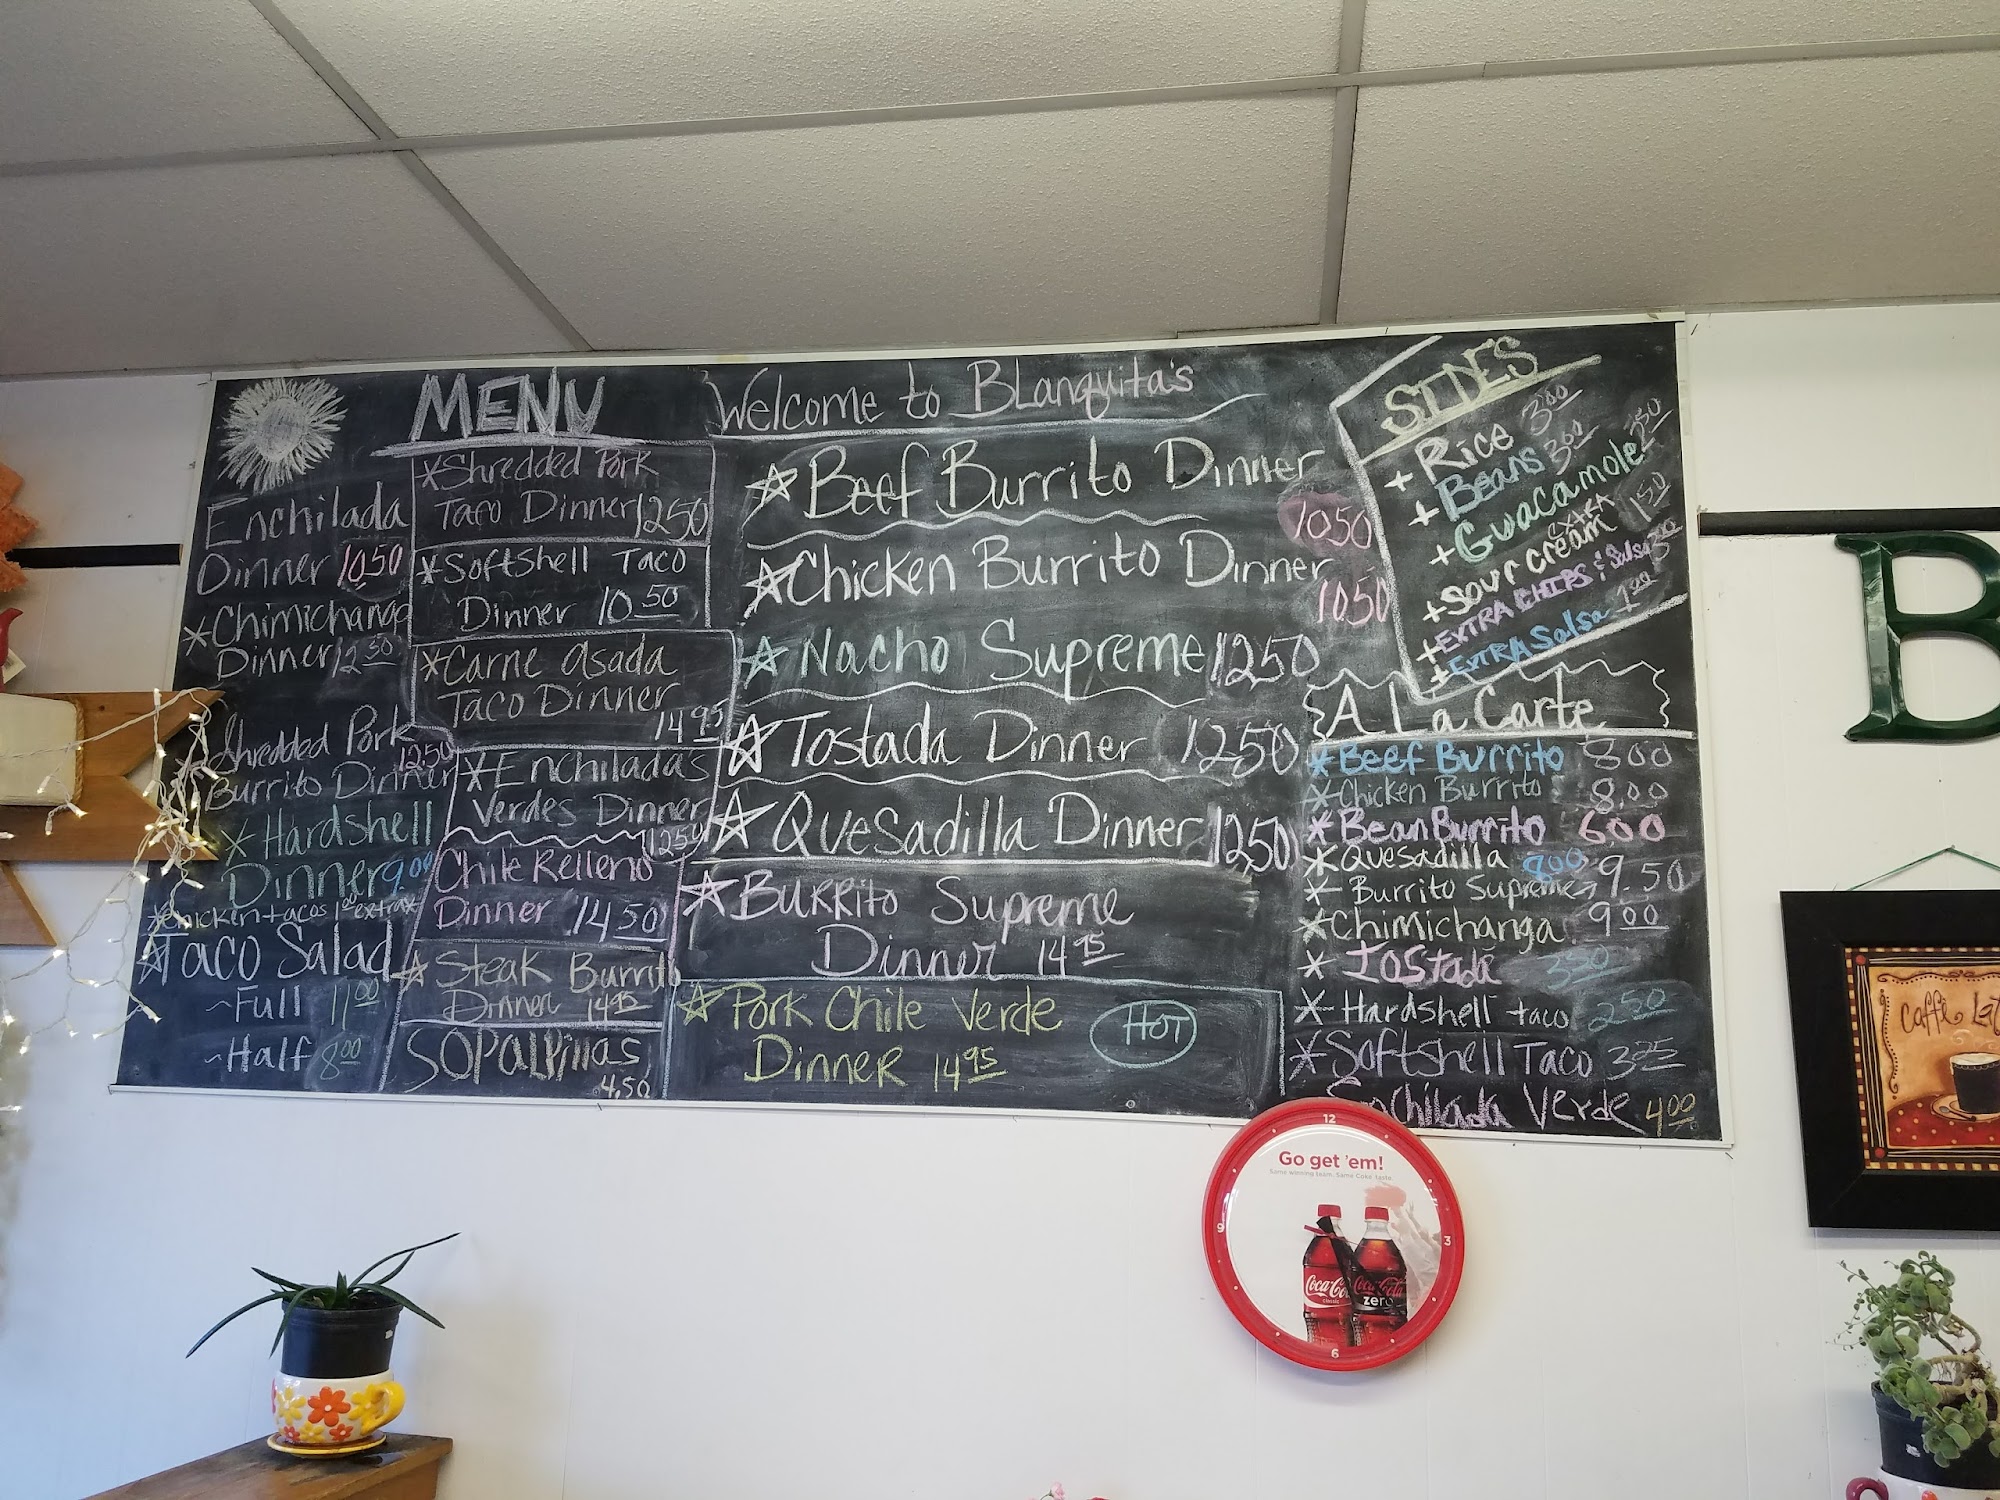 MENU
Enchilada
Dinner 10.50
*Chimichanga
Dinner 12.50
*Shredded Pork
Burrito Dinner 12.50
*Hardshell
Dinner 9.00
*Chicken tacos 1.00 extra*
Taco Salad
~Full 11.00
~Half 8.00
*Shredded Pork
Taco Dinner 12.50
*Softshell Taco
Dinner 10.50
*Carne Asada
Taco Dinner
14.95
*Enchiladas
Verdes Dinner
12.50
Chile Relleno
Dinner 14.50
Steak Burrito
Dinner 14.95
SOPAlpillas
4.50
Welcome to BLanquita's
Beef Burrito Dinner
10.50
Chicken Burrito Dinner
10.50
Nacho Supreme 12.50
Tostada Dinner 12.50
Quesadilla Dinner 12.50
Burrito Supreme
Dinner 14.95
Pork Chile Verde
Dinner 14.95
HOT
SIDES
+ Rice 3.00
+ Beans 3.00
+ Guacamole 2.50
extra
+ Sour cream 1.50
+ EXTRA CHIPS & Salsa 3.00
+ EXTRA Salsa 1.00
A La Carte
*Beef Burrito 8.00
*Chicken Burrito 8.00
*Bean Burrito 6.00
*Quesadilla 8.00
*Burrito Supreme 9.50
*Chimichanga 9.00
*Tostada 3.50
*Hardshell taco 2.50
*Softshell Taco 3.25
Enchilada Verde 4.00
12
3
6
9
Go get 'em!
Same winning team. Same Coke taste.
Coca-Cola
classic
Coca-Cola
zero
B
Caffe Lat